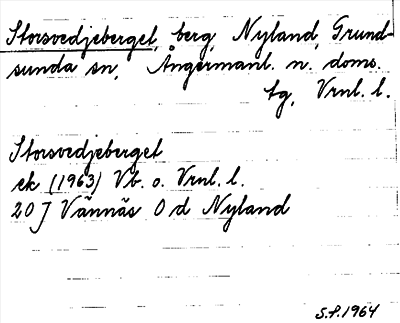 Storsvedjeberget, berg, Nyland, Grund-
sunda sn, Ångermanl. n. doms.
tg, Vrnl. l.
Storsvedjeberget
ek (1963) Vb. o. Vrnl. l.
20 J Vännäs 0 d Nyland
S.P. 1964